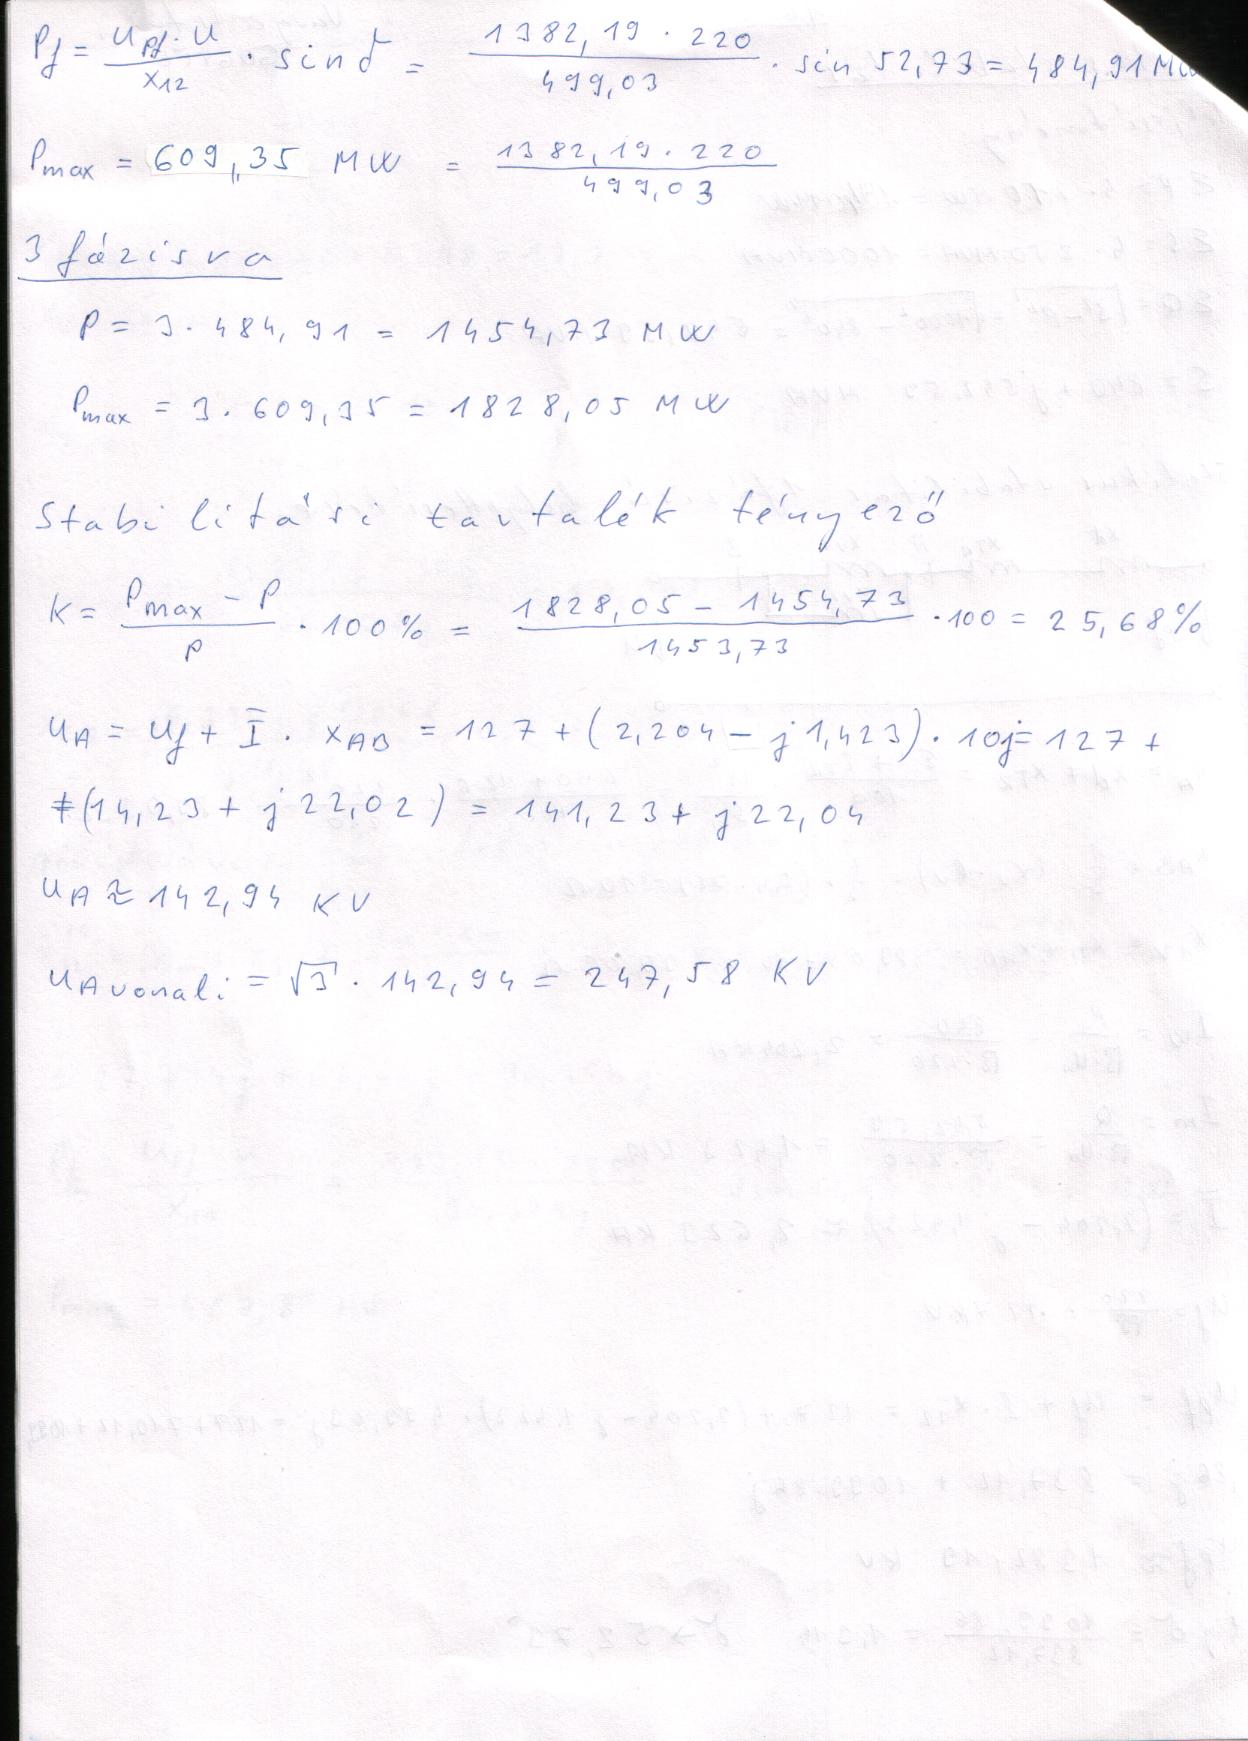 Pf = Upf · U / X12 · sin δ = 1382,19 · 220 / 499,03 · sin 52,73 = 484,91 MW
Pmax = 609,35 MW = 1382,19 · 220 / 499,03
3 fázisra
P = 3 · 484,91 = 1454,73 MW
Pmax = 3 · 609,35 = 1828,05 MW
Stabilitási tartalék tényező
K = Pmax - P / P · 100% = 1828,05 - 1454,73 / 1453,73 · 100 = 25,68%
UA = Uf + Ī · XAB = 127 + (2,204 - j1,423) · 10j = 127 +
+(14,23 + j22,02) = 141,23 + j22,04
UA ≈ 142,94 KV
UA vonali = √3 · 142,94 = 247,58 KV